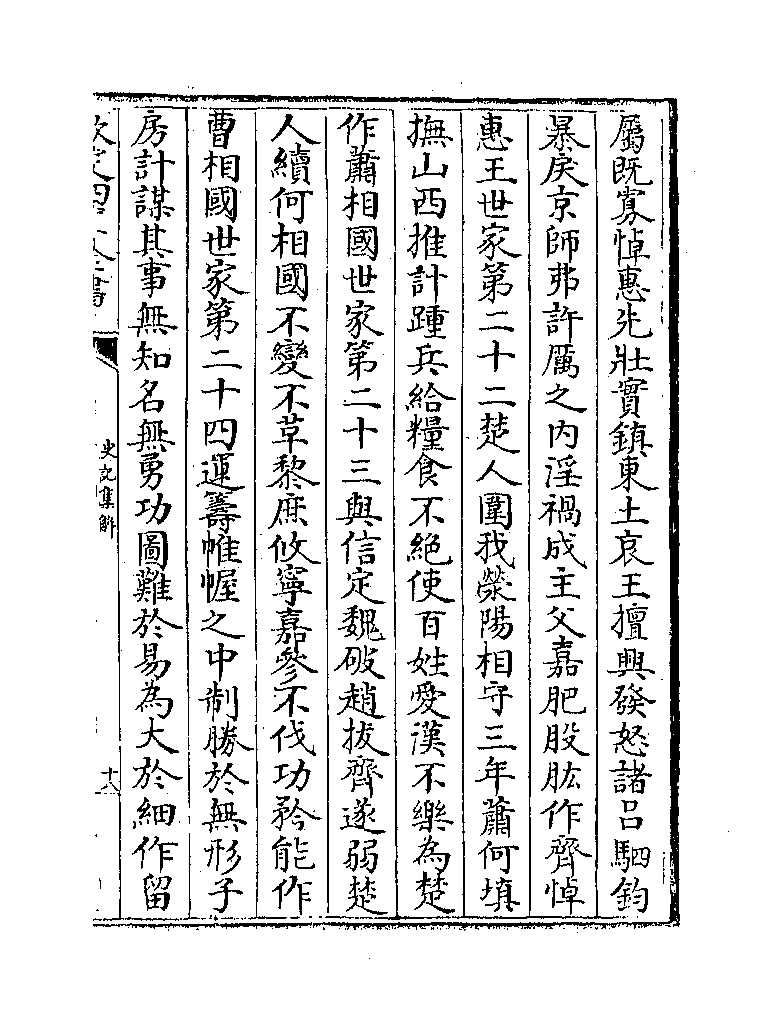 屬既寡悼惠先壯實鎮東土哀王擅興發怒諸吕駟鈞
暴戾京師弗許厲之内淫禍成主父嘉肥股肱作齊悼
惠王世家第二十二楚人圍我滎陽相守三年蕭何填
撫山西推計踵兵給糧食不絶使百姓愛漢不樂為楚
作蕭相國世家第二十三與信定魏破趙拔齊遂弱楚
人續何相國不變不革黎庶攸寧嘉參不伐功矜能作
曹相國世家第二十四運籌帷幄之中制勝於無形子
房計謀其事無知名無勇功圖難於易為大於細作留
欽定四庫全書
史記集解
十八